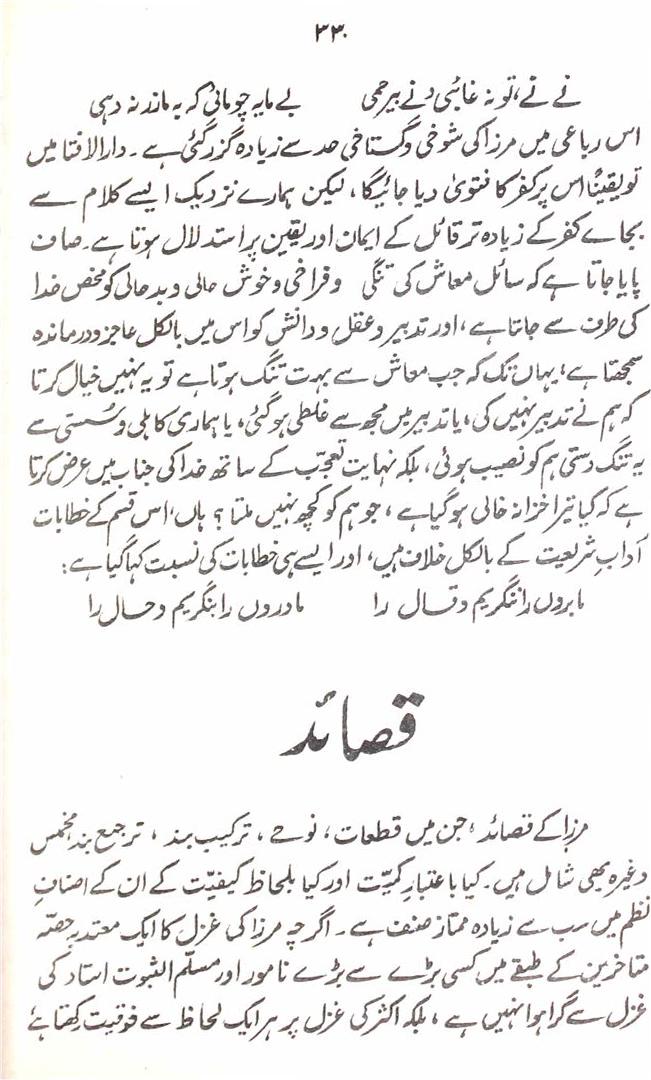 ۳۳۰
نے نے، تو نہ غائبی نے بیرحمی بے مایہ چو مائی کہ بہ ماند نہ دہی
اس رباعی میں مرزا کی شوخی و گستاخی حد سے زیادہ گزر گئی ہے۔ دارالافتا میں
تو یقیناً اس پر کفر کا فتویٰ دیا جائیگا، لیکن ہمارے نزدیک ایسے کلام سے
بجاے کفر کے زیادہ تر قائل کے ایمان اور یقین پر استدلال ہوتا ہے۔ صاف
پایا جاتا ہے کہ سائل معاش کی تنگی و فراخی و خوش حالی و بدحالی کو محض خدا
کی طرف سے جانتا ہے، اور تدبیر و عقل و دانش کو اس میں بالکل عاجز و درماندہ
سمجھتا ہے؛ یہاں تک کہ جب معاش سے بہت تنگ ہوتا ہے تو یہ نہیں خیال کرتا
کہ ہم نے تدبیر نہیں کی، یا تدبیر میں مجھ سے غلطی ہوگئی، یا ہماری کاہلی و سُستی سے
یہ تنگ دستی ہم کو نصیب ہوئی، بلکہ نہایت تعجّب کے ساتھ خدا کی جناب میں عرض کرتا
ہے کہ کیا تیرا خزانہ خالی ہوگیا ہے، جو ہم کو کچھ نہیں ملتا؟ ہاں، اس قسم کے خطابات
آدابِ شریعت کے بالکل خلاف ہیں، اور ایسے ہی خطابات کی نسبت کہا گیا ہے:
ما بروں را ننگریم و قال را ما دروں را بنگریم و حال را
قصائد
مرزا کے قصائد، جن میں قطعات، نوحے، ترکیب بند، ترجیع بند، مخمس
وغیرہ بھی شامل ہیں۔ کیا باعتبارِ کمیّت اور کیا بلحاظ کیفیّت کے ان کے اصنافِ
نظم میں سب سے زیادہ ممتاز صنف ہے۔ اگرچہ مرزا کی غزل کا ایک معتدبہ حصّہ
متاخرین کے طبقے میں کسی بڑے سے بڑے نامور اور مسلّم الثبوت استاد کی
غزل سے گرا ہوا نہیں ہے، بلکہ اکثر کی غزل پر ہر ایک لحاظ سے فوقیت رکھتا ہے؛